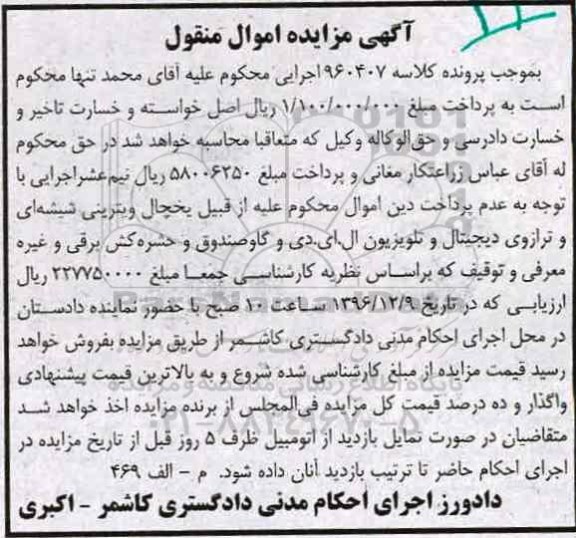 آگهی مزایده اموال منقول
بموجب پرونده کلاسه ۹۶۰۴۰۷ اجرایی محکوم علیه آقای محمد تنها محکوم
است به پرداخت مبلغ ۱/۱۰۰/۰۰۰/۰۰۰ ریال اصل خواسته و خسارت تاخیر و
خسارت دادرسی و حق‌الوکاله وکیل که متعاقبا محاسبه خواهد شد در حق محکوم
له آقای عباس زراعتکار مغانی و پرداخت مبلغ ۵۸۰۰۶۲۵۰ ریال نیم‌عشراجرایی با
توجه به عدم پرداخت دین اموال محکوم علیه از قبیل یخچال ویترینی شیشه‌ای
و ترازوی دیجیتال و تلویزیون ال.ای.دی و گاوصندوق و حشره‌کش برقی و غیره
معرفی و توقیف که براساس نظریه کارشناسی جمعا مبلغ ۲۲۷۷۵۰۰۰۰ ریال
ارزیابی که در تاریخ ۱۳۹۶/۱۲/۹ ساعت ۱۰ صبح با حضور نماینده دادستان
در محل اجرای احکام مدنی دادگستری کاشمر از طریق مزایده بفروش خواهد
رسید قیمت مزایده از مبلغ کارشناسی شده شروع و به بالاترین قیمت پیشنهادی
واگذار و ده درصد قیمت کل مزایده فی‌المجلس از برنده مزایده اخذ خواهد شد
متقاضیان در صورت تمایل بازدید از اتومبیل ظرف ۵ روز قبل از تاریخ مزایده در
اجرای احکام حاضر تا ترتیب بازدید آنان داده شود. م - الف ۴۶۹
دادورز اجرای احکام مدنی دادگستری کاشمر - اکبری